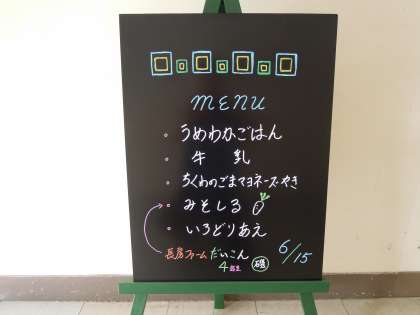 MENU
うめわかごはん
牛 乳
ちくわのごまマヨネーズやき
みそしる
いろどりあえ
長房ファーム だいこん
6/15